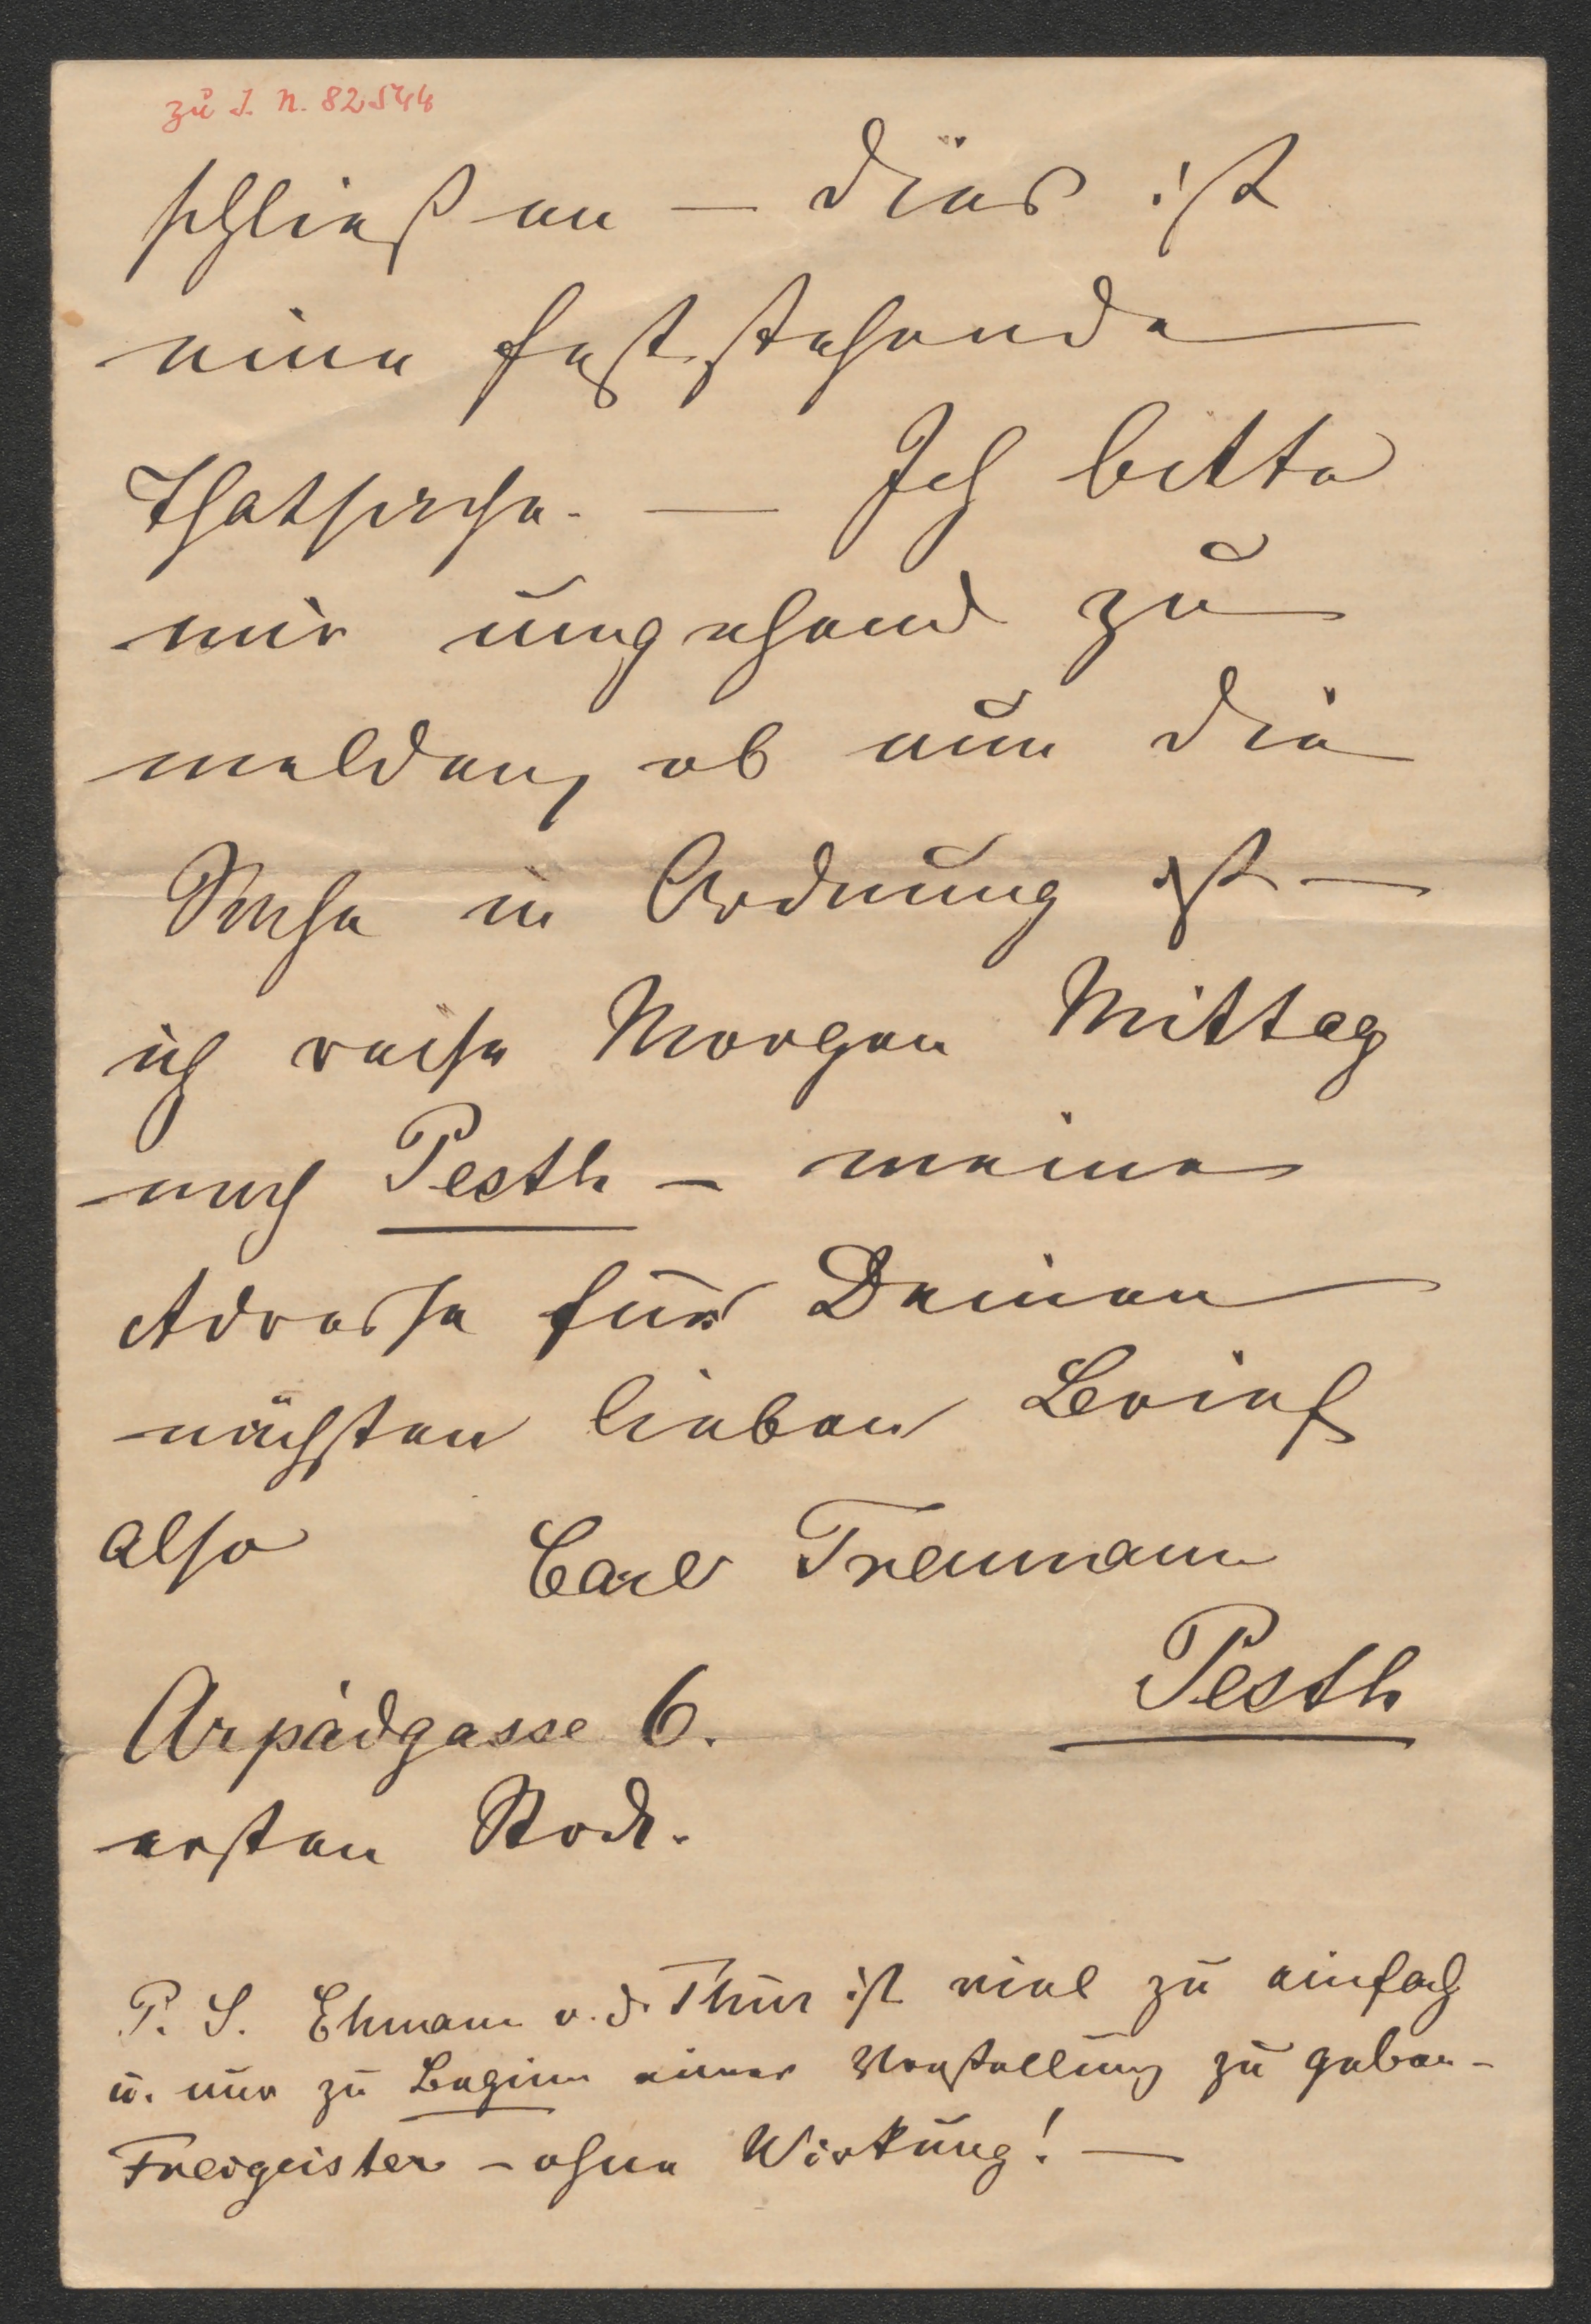 zu I. N. 82544
schließen — dies ist
eine feststehende
Thatsache. — Ich bitte
mir umgehend zu
melden, ob nun die
Sache in Ordnung ist —
ich reise Morgen Mittag
nach Pesth — meine
Adresse für Deinen
nächsten lieben Brief
also Carl Treumann
Pesth
Arpádgasse 6.
ersten Stock.
P. S. Ehmann v. d. Thür ist viel zu einfach
u. nur zu Beginn einer Vorstellung zu geben —
Freigeister — ohne Wirkung! —